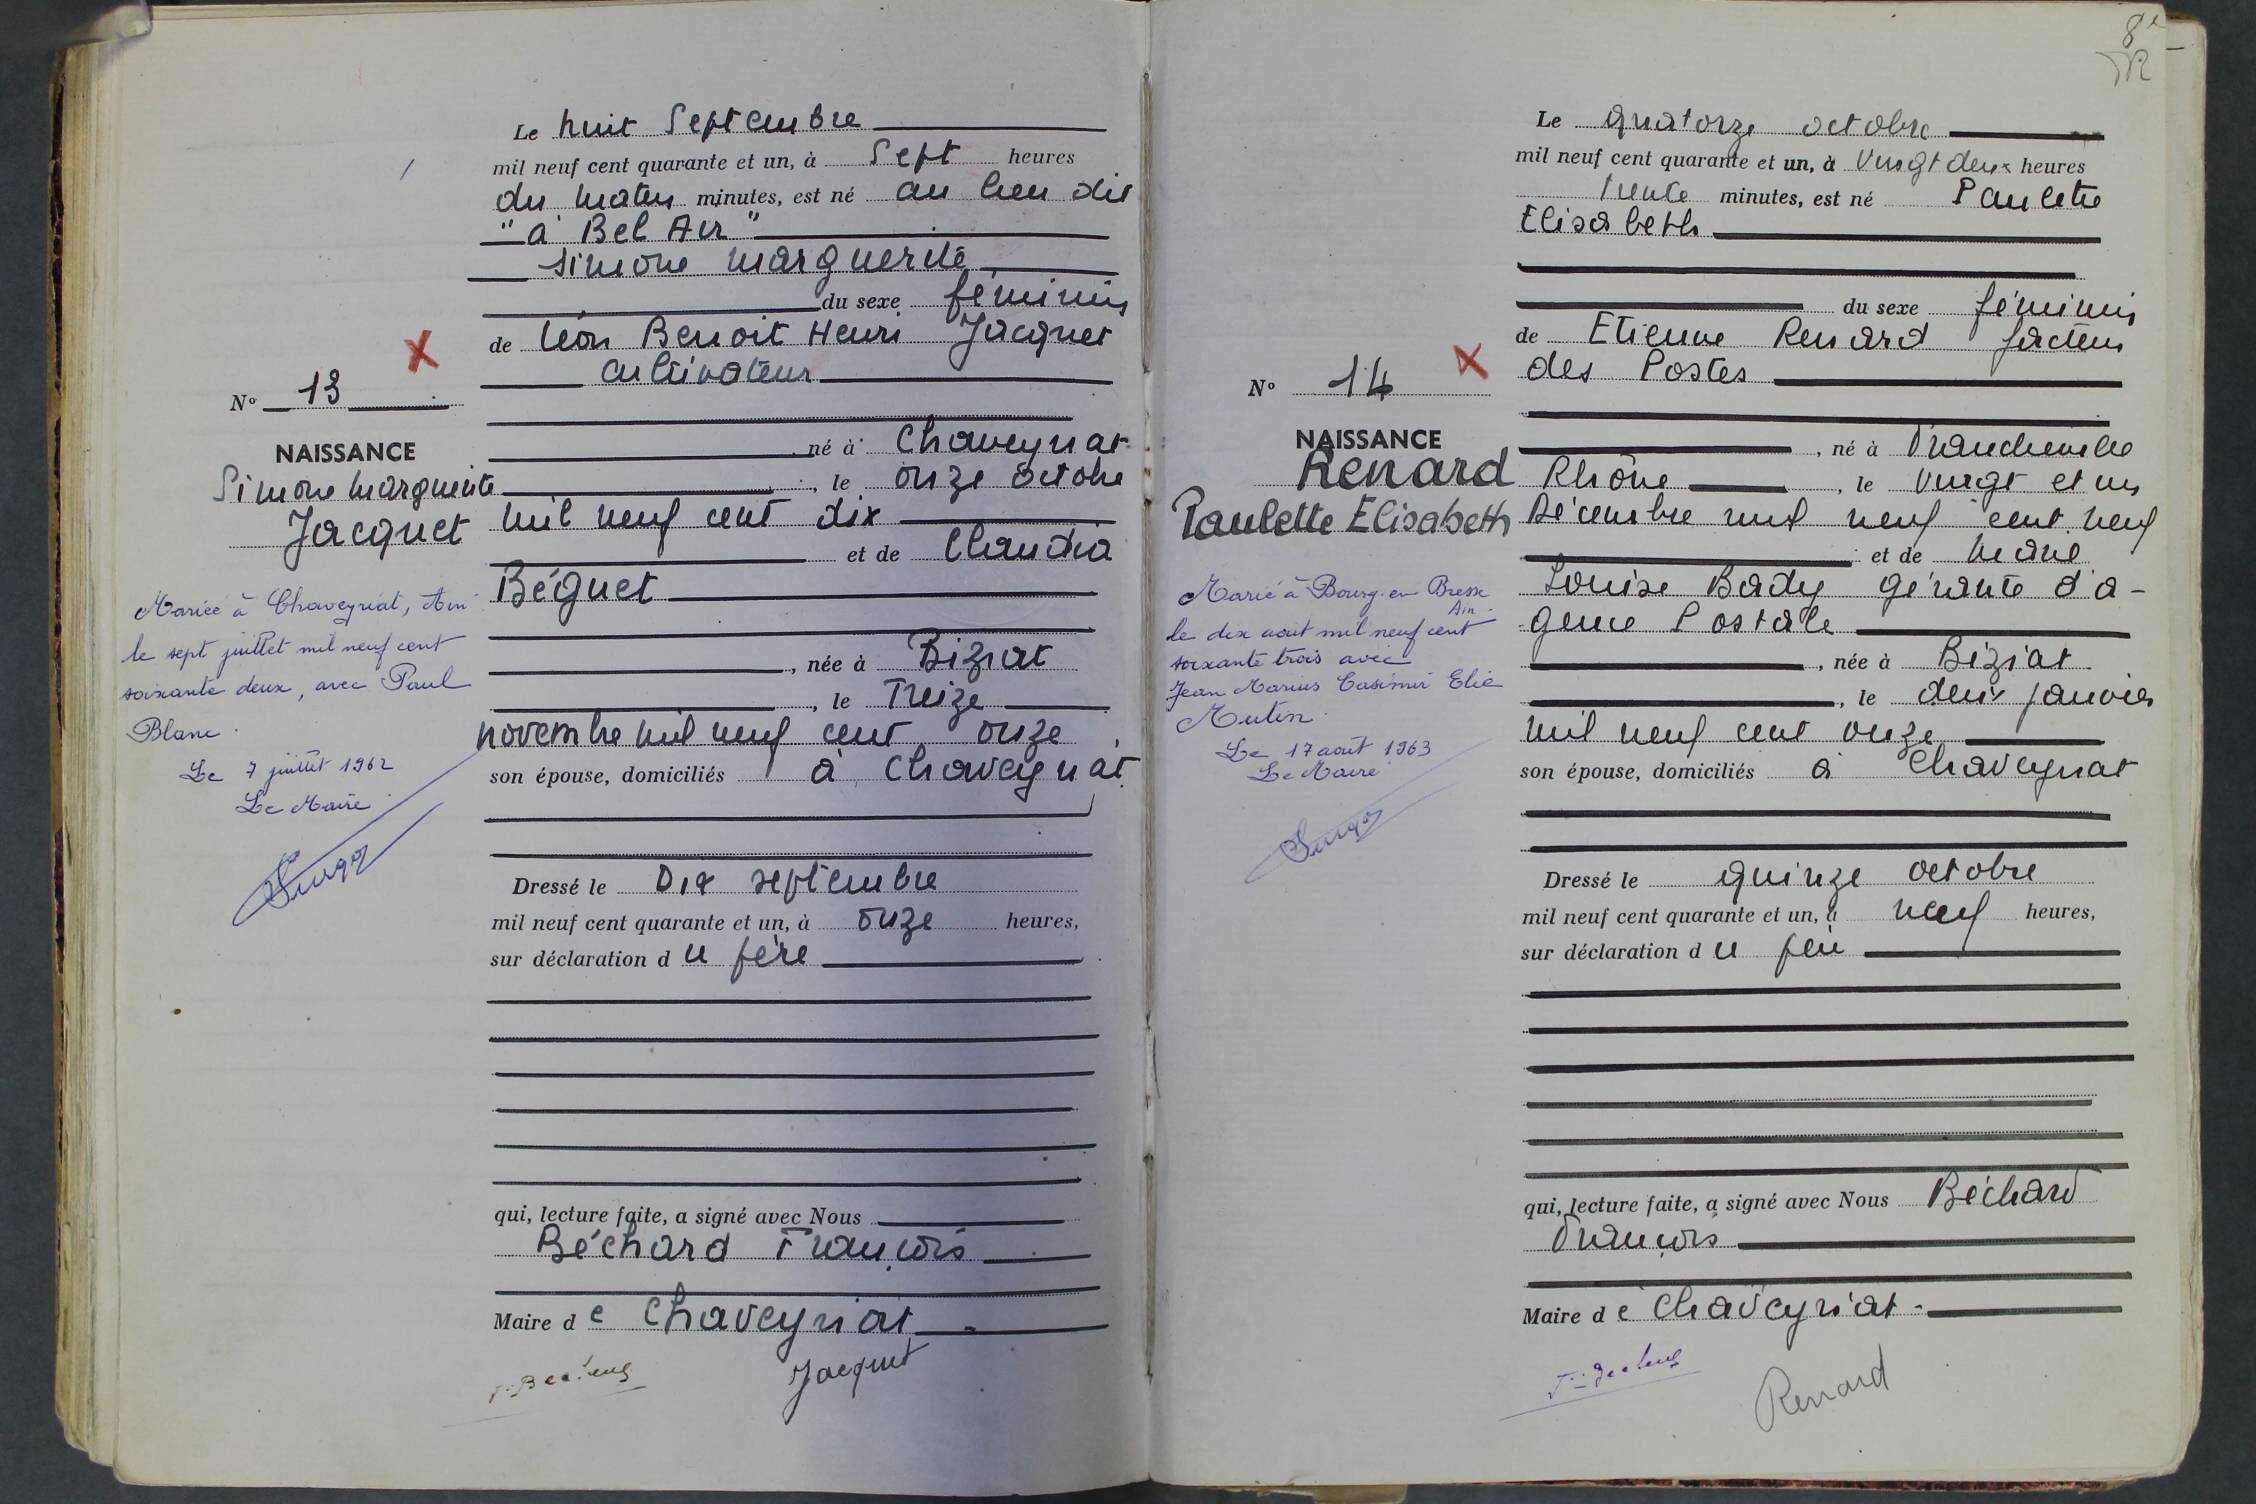 Le huit Septembre
mil neuf cent quarante et un, à Sept heures
du matin minutes, est né au lieu dit
"à Bel Air"
Simone Marguerite
du sexe féminin
de Léon Benoit Henri Jacquet
cultivateur
né à Chaveyriat
, le onze octobre
mil neuf cent dix
et de Claudia
Béguet
, née à Biziat
, le Treize
novembre mil neuf cent onze
son épouse, domiciliés à Chaveyriat
Dressé le Dix septembre
mil neuf cent quarante et un, à onze heures,
sur déclaration du père
qui, lecture faite, a signé avec Nous
Béchard François
Maire de Chaveyriat
Jacquet
N° 13
NAISSANCE
Simone Marguerite
Jacquet
Mariée à Chaveyriat, Ain
le sept juillet mil neuf cent
soixante deux, avec Paul
Blanc.
Le 7 juillet 1962
Le Maire
8
Le quatorze octobre
mil neuf cent quarante et un, à vingt deux heures
trente minutes, est né Paulette
Elisabeth
du sexe féminin
de Etienne Renard facteur
des Postes
, né à Francheville
Rhône , le vingt et un
Décembre mil neuf cent neuf
et de Marie
Louise Bady gérante d'a-
gence Postale
, née à Biziat
, le deux janvier
mil neuf cent onze
son épouse, domiciliés à Chaveyriat
Dressé le quinze octobre
mil neuf cent quarante et un, à neuf heures,
sur déclaration du père
qui, lecture faite, a signé avec Nous Béchard
François
Maire de Chaveyriat -
Renard
N° 14
NAISSANCE
Renard
Paulette Elisabeth
Marié à Bourg-en-Bresse
Ain -
le dix août mil neuf cent
soixante trois avec
Jean Marius Casimir Elie
Mutin.
Le 17 août 1963
Le Maire